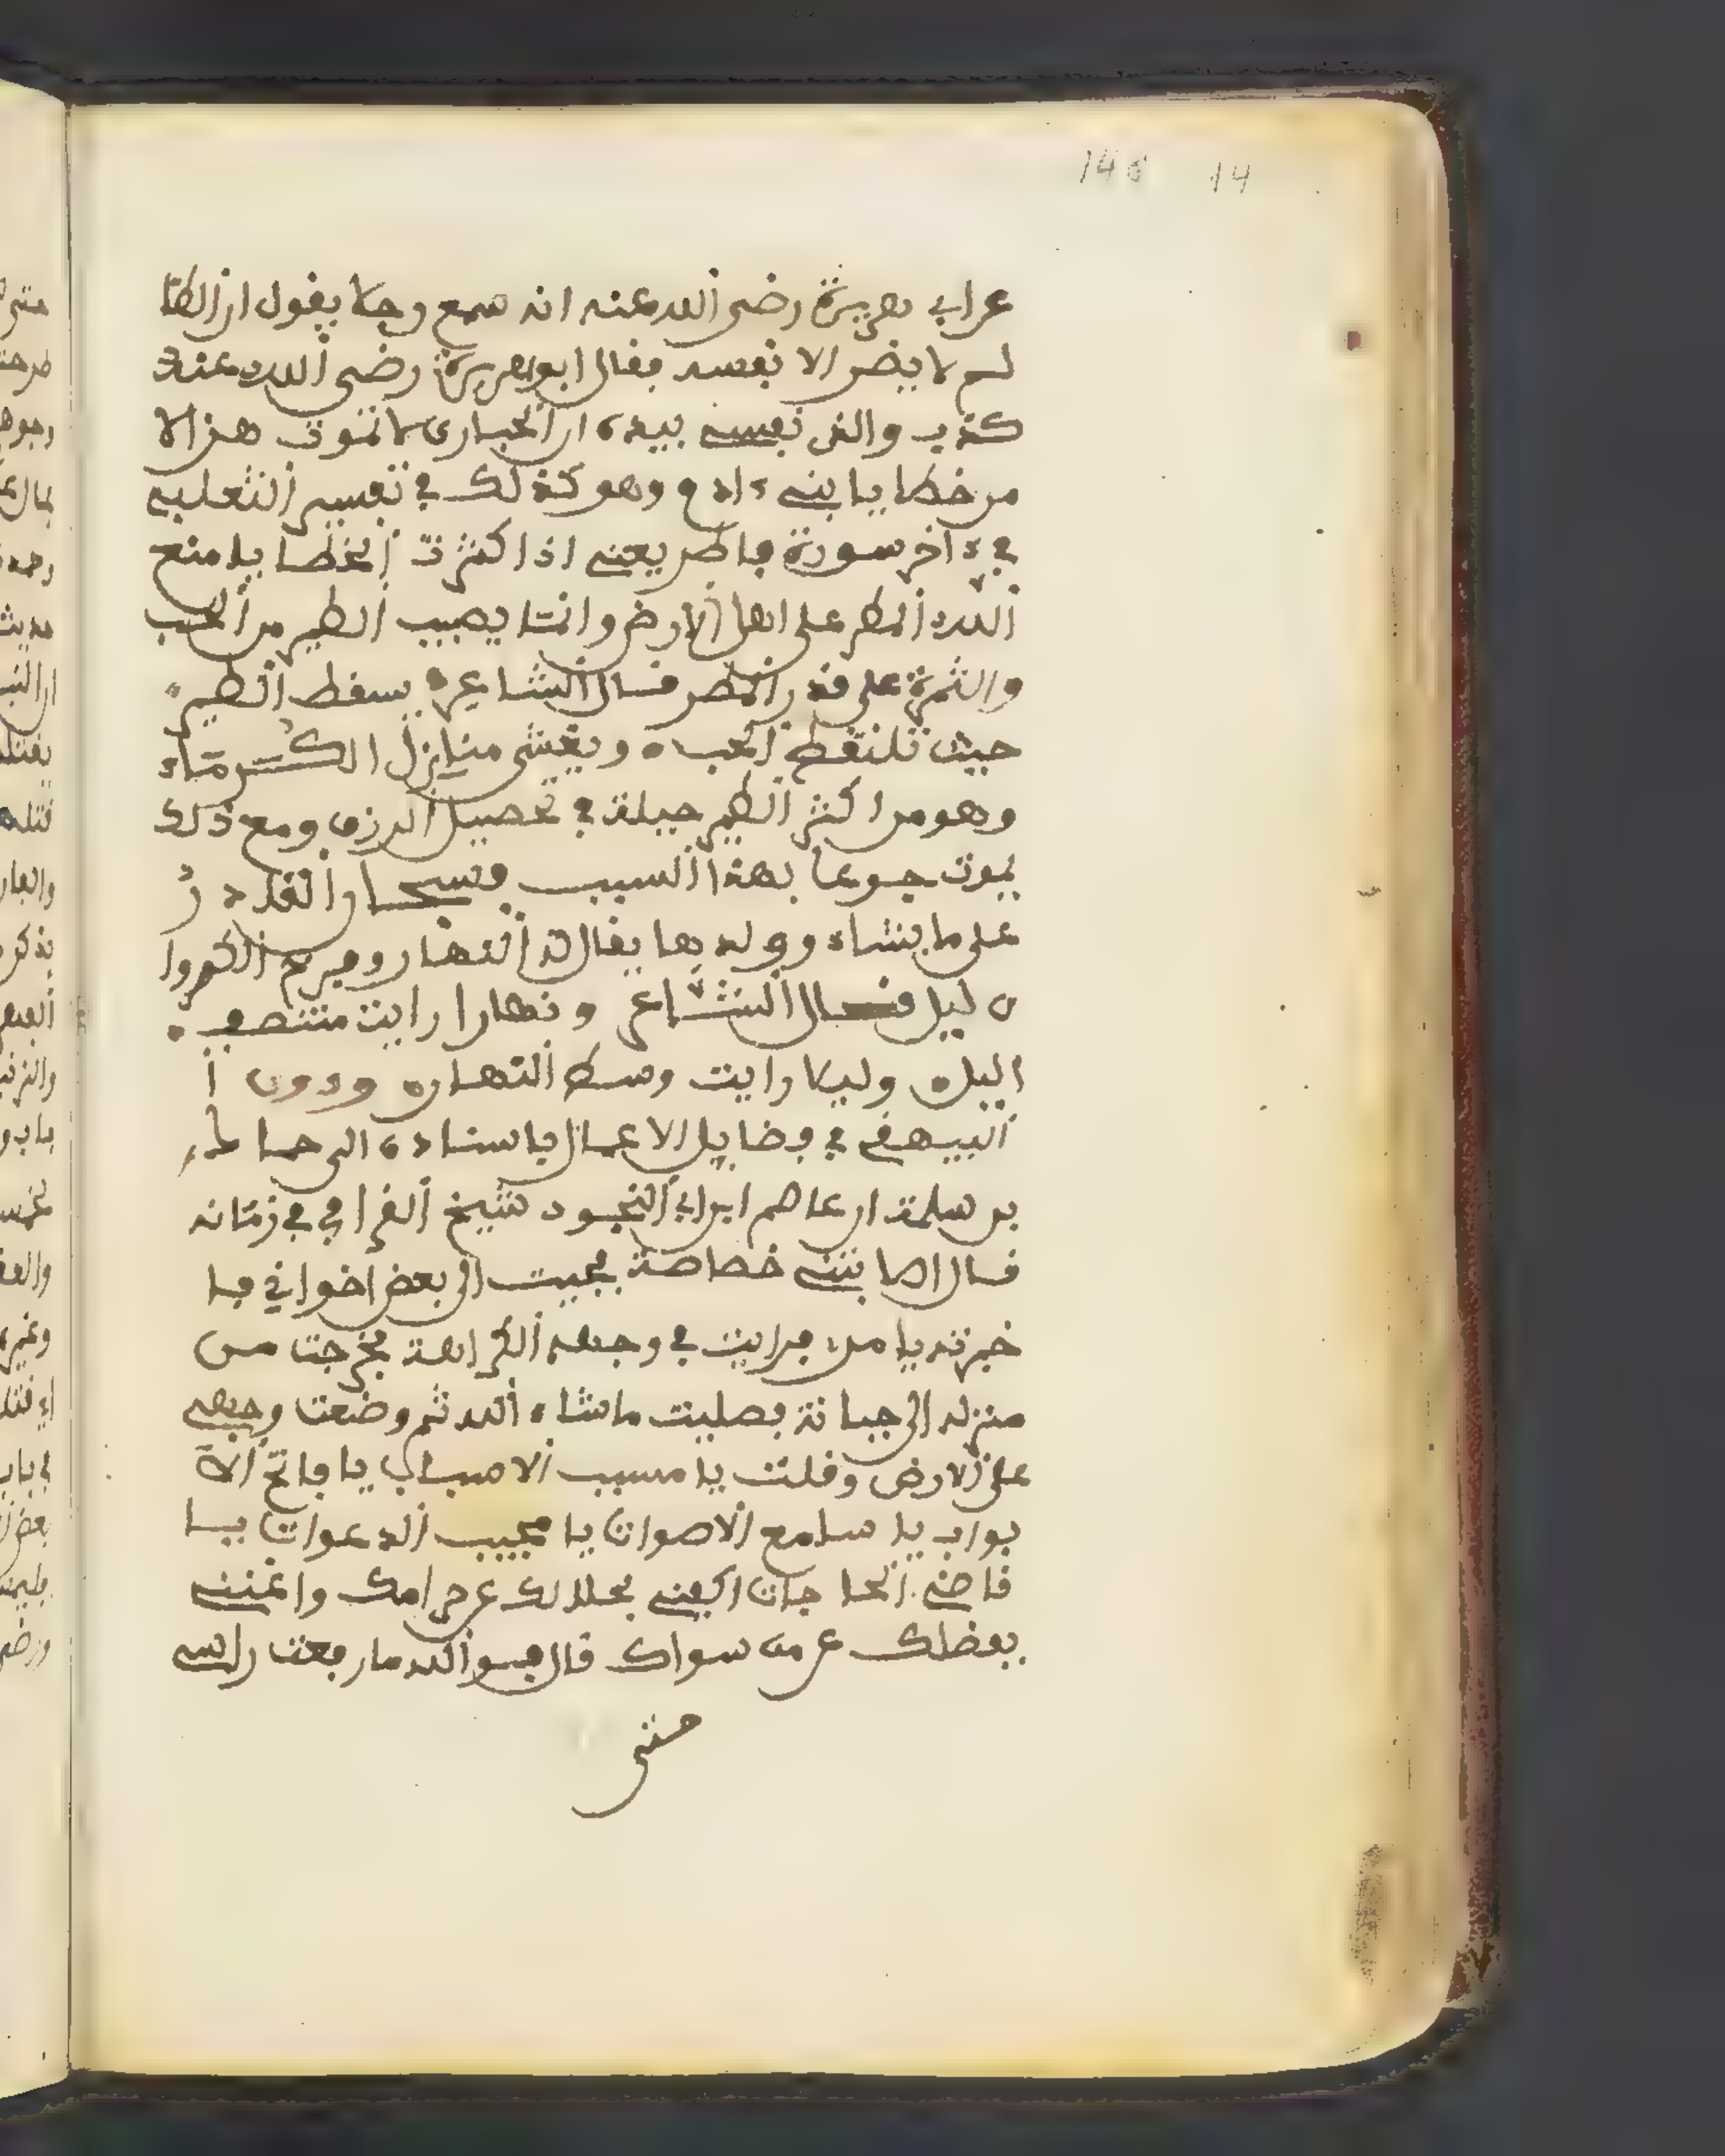 146 14
عن ابي هريرة رضى الله عنه انه سمع رجلا يقول ان الظا
لم لا يضر الا نفسه فقال ابو هريرة رضى الله عنه
كذب والذى نفسي بيده ان الحبارى لا تموت هزلا
من خطايا بني ءادم وهو كذلك في تفسير الثعلبي
في ءاخر سورة فاطر يعني اذا كثرت الخطايا منع
الله المطر على اهل الارض وانما يصيب الطير من الحب
والثمرة على قدر المطر قال الشاعر يسقط الطير
حيث تلتقط الحب ويغشى منازل الكرماء
وهو من اكثر الطير حيلة في تحصيل الرزق ومع ذلك
يموت جوعا بهذا السبب فسبحان القادر
على ما يشاء وولدها يقال له النهار وفرخ الكروا
ن ليل قال الشاعر ونهارا رايت منتصف
اليل وليلا رايت وسط النهار وروى ا
البيهقي في فضايل الاعمال باسناده الى حماد
بن سلمة ان عاصم ابن ابي النجود شيخ القرا في زمانه
قال اصابتني خصاصة فجيت الى بعض اخواني فا
خبرته بامرى فرايت في وجهه الكراهة فخرجت من
منزله الى جبانة فصليت ما شاء الله ثم وضعت وجهي
على الارض وقلت يا مسبب الاسباب يا فاتح الا
بواب يا سامع الاصوات يا مجيب الدعوات يا
قاضي الحاجات اكفني بحلالك عن حرامك واغنني
بفضلك عن من سواك قال فوالله ما رفعت راسي
حتى